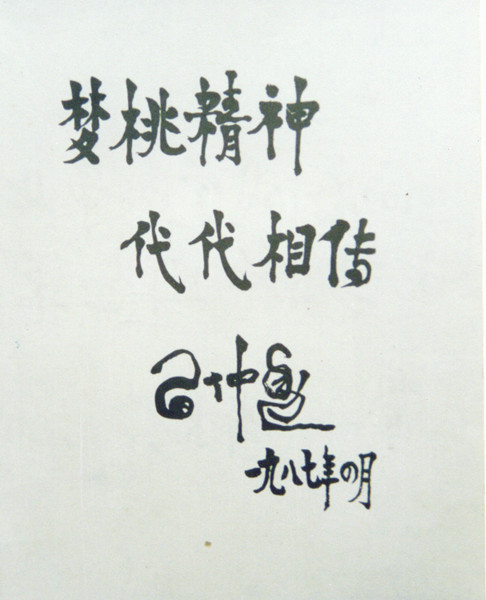 梦桃精神
代代相传
仲
一九八七年四月